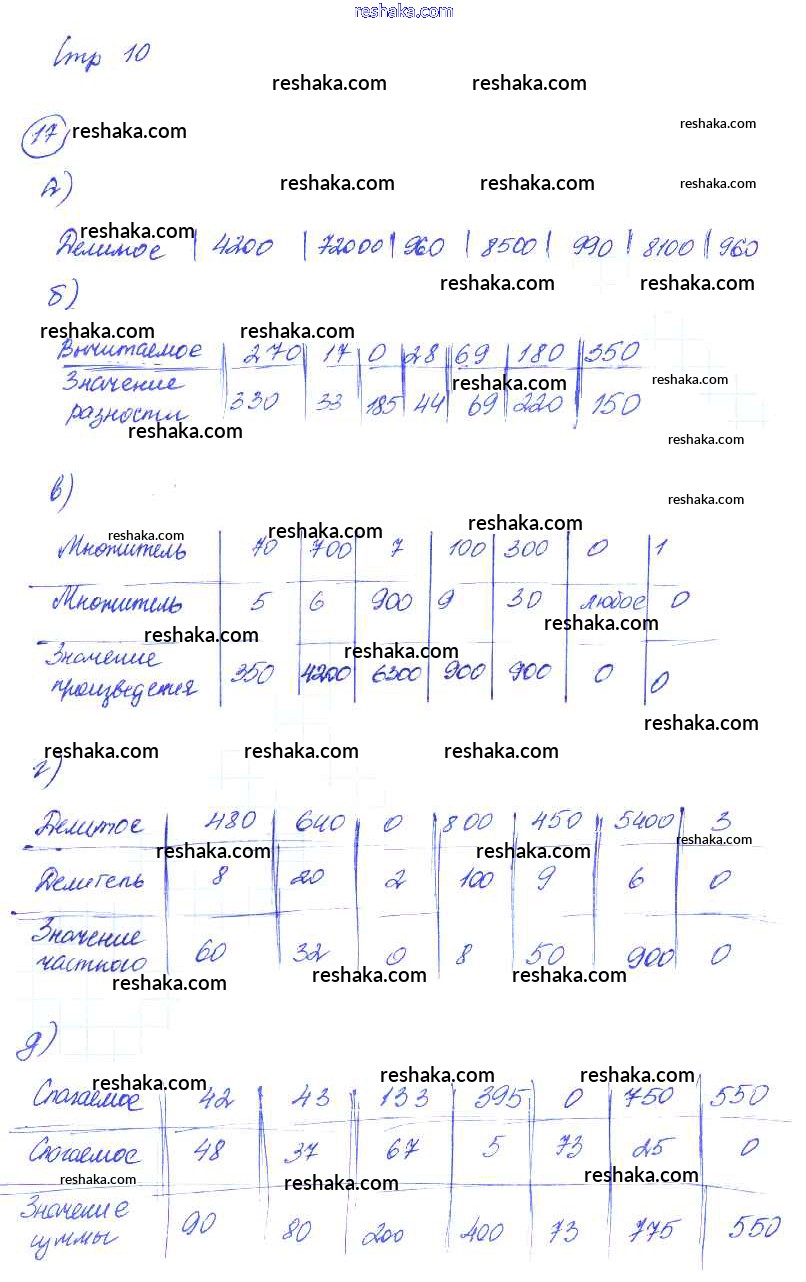 reshaka.com
Стр 10
reshaka.com reshaka.com
17 reshaka.com reshaka.com
а) reshaka.com reshaka.com reshaka.com
reshaka.com
Делимое | 4200 | 72000 | 960 | 8500 | 990 | 8100 | 960
б) reshaka.com reshaka.com
reshaka.com reshaka.com
Вычитаемое 270 17 0 28 69 180 350
reshaka.com reshaka.com
Значение
разности 330 33 185 44 69 220 150
reshaka.com reshaka.com
в) reshaka.com
reshaka.com reshaka.com reshaka.com
Множитель 70 700 7 100 300 0 1
Множитель 5 6 900 9 30 любое 0
reshaka.com reshaka.com
reshaka.com
Значение
произведения 350 4200 6300 900 900 0 0
reshaka.com
reshaka.com reshaka.com reshaka.com
г)
Делимое 480 640 0 800 450 5400 3
reshaka.com reshaka.com reshaka.com
Делитель 8 20 2 100 9 6 0
Значение
частного 60 32 0 8 50 900 0
reshaka.com reshaka.com reshaka.com
д)
reshaka.com reshaka.com reshaka.com
Слагаемое 42 43 133 395 0 750 550
Слагаемое 48 37 67 5 73 25 0
reshaka.com reshaka.com reshaka.com
Значение
суммы 90 80 200 400 73 775 550